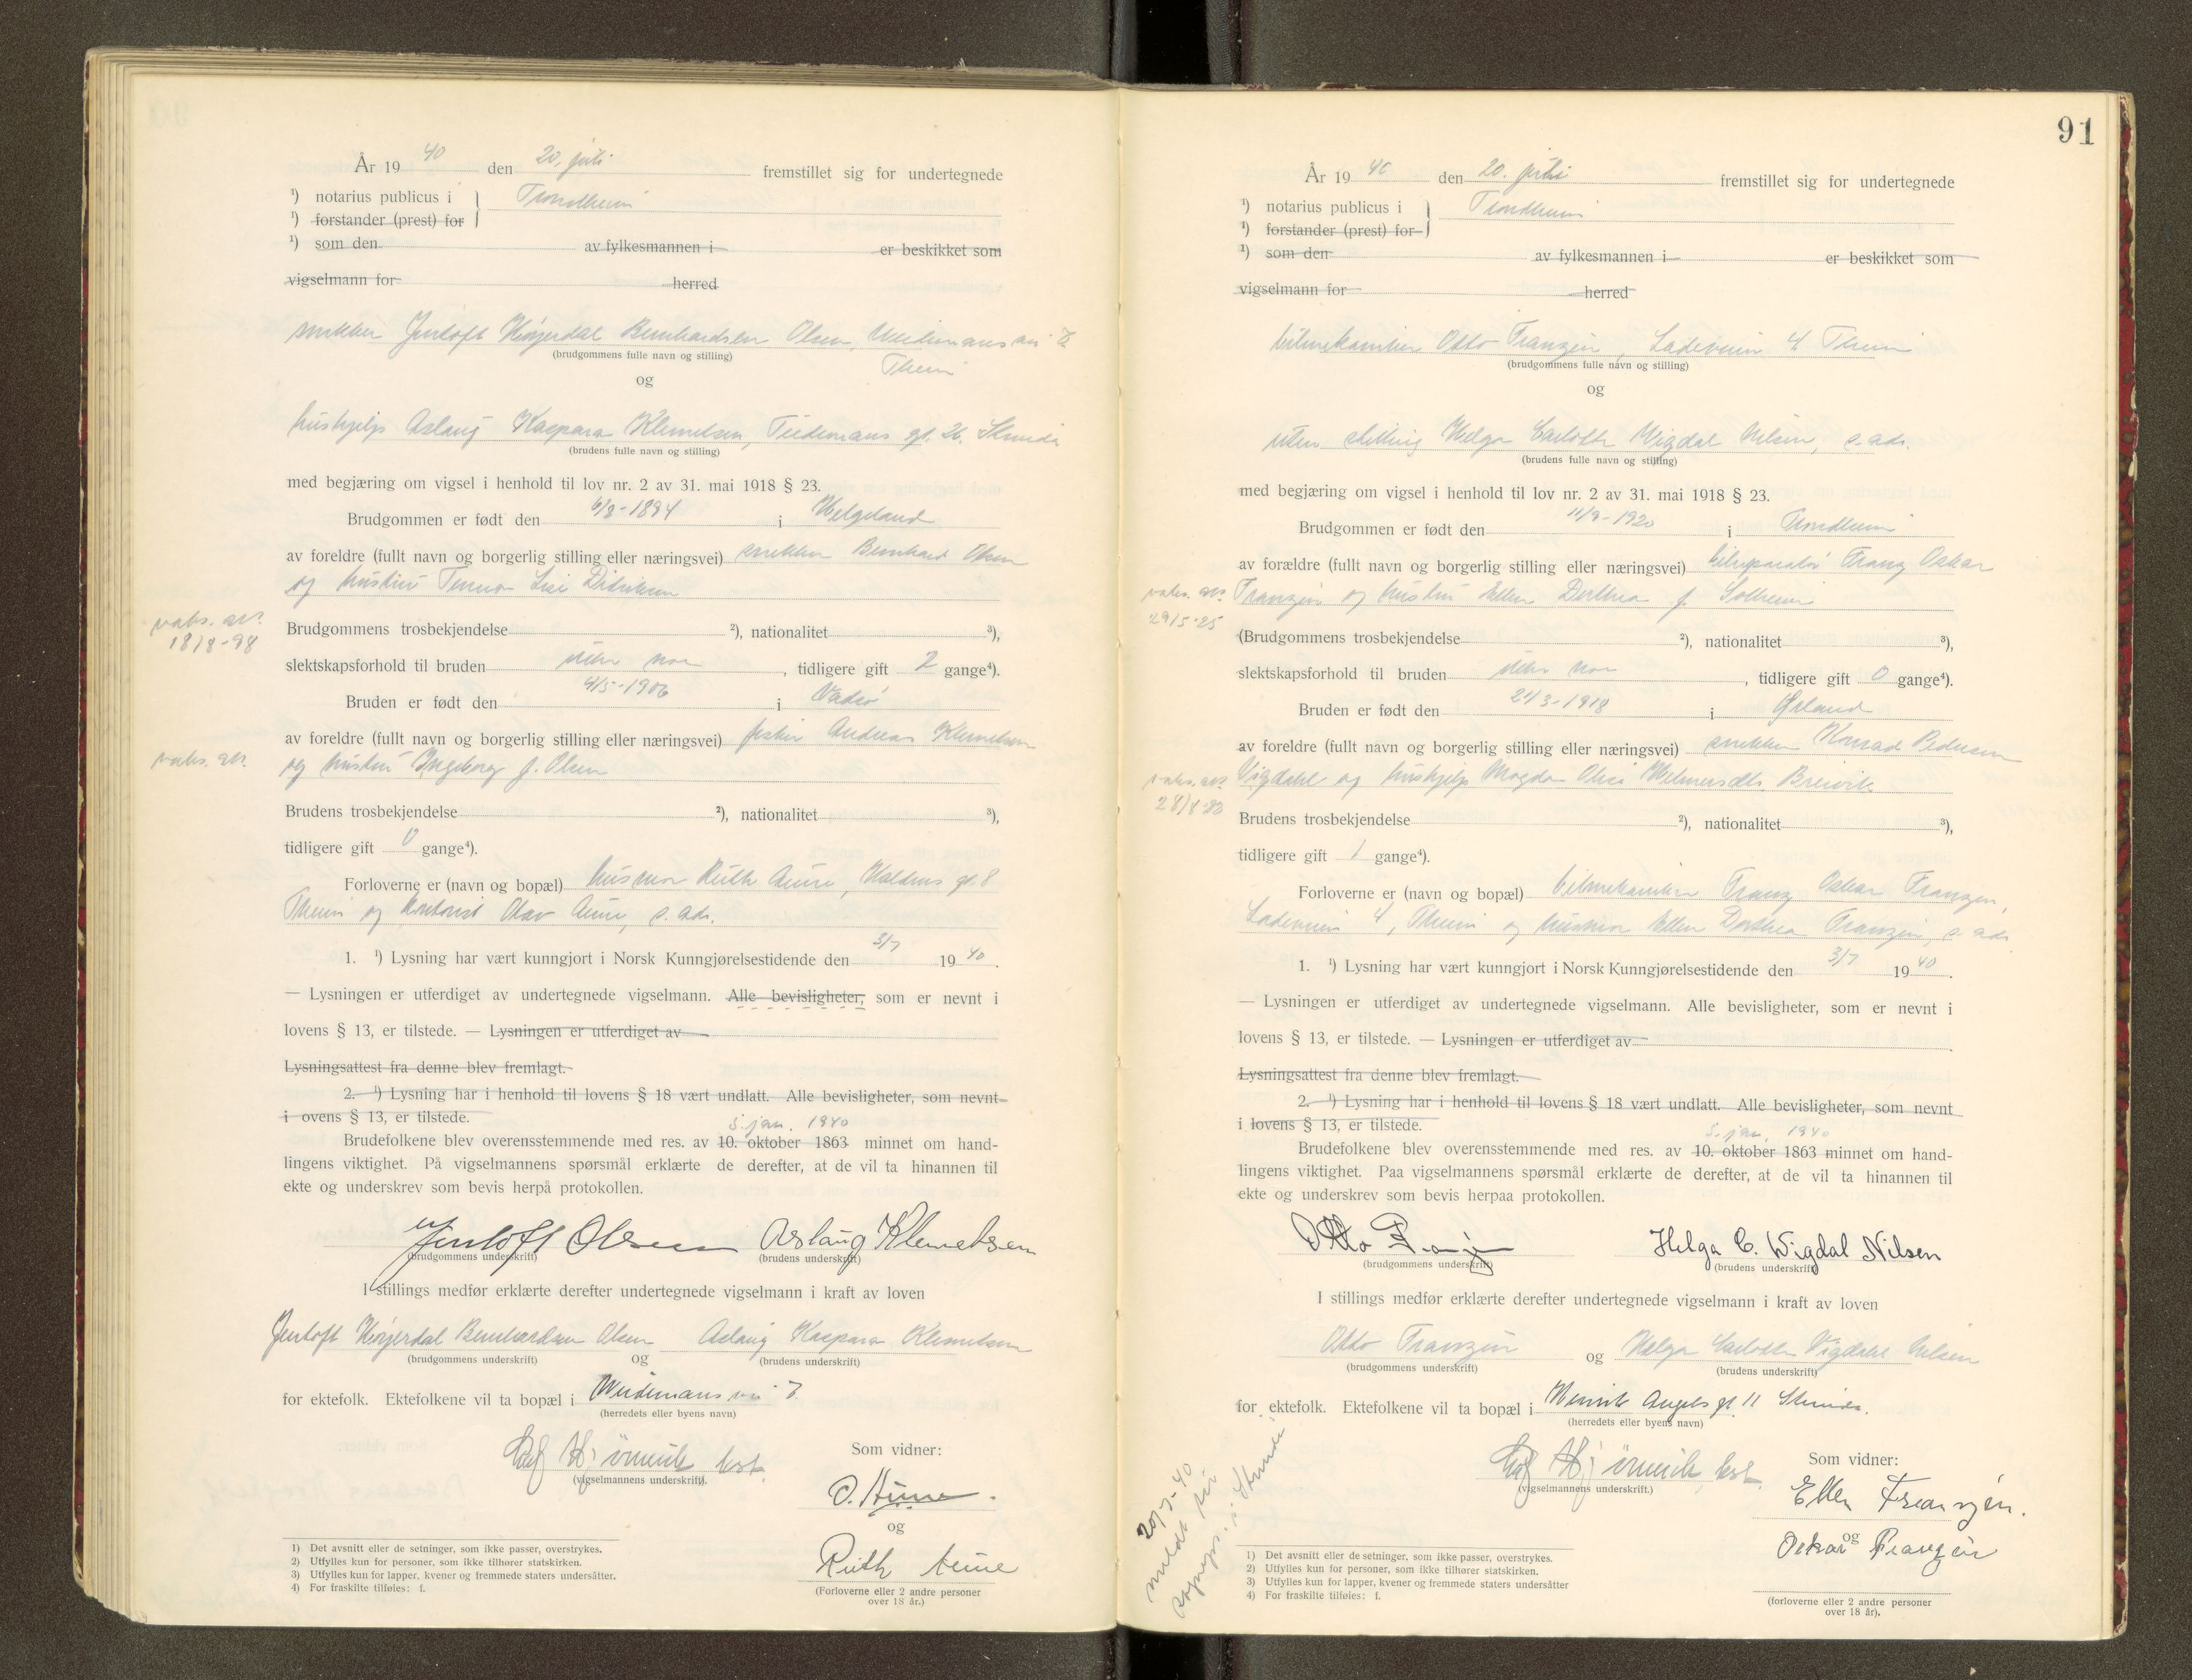 År 19 40 den 20. juli fremstillet sig for undertegnede
¹) notarius publicus i Trondheim
¹) forstander (prest) for
¹) som den av fylkesmannen i er beskikket som
vigselmann for herred
snekker Jentoft Olsen,
(brudgommens fulle navn og stilling)
Theim
og
hushjelp Aslaug Kaspara Klemetsen, gt. 26. Strinda
(brudens fulle navn og stilling)
med begjæring om vigsel i henhold til lov nr. 2 av 31. mai 1918 § 23.
Brudgommen er født den 6/8-1894 i Helgeland
av foreldre (fullt navn og borgerlig stilling eller næringsvei) snekker Bernhard Olsen
og hustru Didriksen
vaks. att.
18/8-98
Brudgommens trosbekjendelse ²), nationalitet ³),
slektskapsforhold til bruden , tidligere gift 2 gange⁴).
Bruden er født den 4/5-1906 i Vadsø
av foreldre (fullt navn og borgerlig stilling eller næringsvei) fisker Andreas Klemetsen
vaks. att. og hustru Ingeborg f. Olsen
Brudens trosbekjendelse ²), nationalitet ³),
tidligere gift 0 gange⁴).
Forloverne er (navn og bopæl) husmor Ruth Aune, gt. 8
Theim og kontorist Olav Aune, s. ads.
1. ¹) Lysning har vært kunngjort i Norsk Kunngjørelsestidende den 3/7 19 40.
— Lysningen er utferdiget av undertegnede vigselmann. Alle bevisligheter, som er nevnt i
lovens § 13, er tilstede. — Lysningen er utferdiget av
Lysningsattest fra denne blev fremlagt.
2. ¹) Lysning har i henhold til lovens § 18 vært undlatt. Alle bevisligheter, som nevnt
i ovens § 13, er tilstede.
5. jan. 1940
Brudefolkene blev overensstemmende med res. av 10. oktober 1863 minnet om hand-
lingens viktighet. På vigselmannens spørsmål erklærte de derefter, at de vil ta hinannen til
ekte og underskrev som bevis herpå protokollen.
Jentoft Olsen Aslaug Klemetsen
(brudgommens underskrift) (brudens underskrift)
I stillings medfør erklærte derefter undertegnede vigselmann i kraft av loven
Jentoft Olsen og Aslaug Kaspara Klemetsen
(brudgommens underskrift) (brudens underskrift)
for ektefolk. Ektefolkene vil ta bopæl i
(herredets eller byens navn)
(vigselmannens underskrift).
Som vidner:
O. Aune.
og
Ruth Aune
(Forloverne eller 2 andre personer
over 18 år.)
1) Det avsnitt eller de setninger, som ikke passer, overstrykes.
2) Utfylles kun for personer, som ikke tilhører statskirken.
3) Utfylles kun for lapper, kvener og fremmede staters undersåtter.
4) For fraskilte tilføies: f.
91
År 19 40 den 20. juli fremstillet sig for undertegnede
¹) notarius publicus i Trondheim
¹) forstander (prest) for
¹) som den av fylkesmannen i er beskikket som
vigselmann for herred
bilmekaniker Otto Franzén, Ladeveien 4 Theim
(brudgommens fulle navn og stilling)
og
uten stilling Helga Carlotte Wigdal Nilsen, s. ads.
(brudens fulle navn og stilling)
med begjæring om vigsel i henhold til lov nr. 2 av 31. mai 1918 § 23.
Brudgommen er født den 11/9-1920 i Trondheim
av forældre (fullt navn og borgerlig stilling eller næringsvei) bilreparatør Franz Oskar
vaks. att. Franzén og hustru Ellen Dorthea f. Solheim
29/5-25
(Brudgommens trosbekjendelse ²), nationalitet ³),
slektskapsforhold til bruden , tidligere gift 0 gange⁴).
Bruden er født den 21/3-1918 i Ørland
av foreldre (fullt navn og borgerlig stilling eller næringsvei) snekker Konrad Pedersen
vaks. att. Vigdahl og hushjelp Magda Breivik
Brudens trosbekjendelse ²), nationalitet ³),
tidligere gift 1 gange⁴).
Forloverne er (navn og bopæl) bilmekaniker Franz Oskar Franzen,
Ladeveien 4, Theim og husmor Ellen Dorthea Franzén, s. ads.
1. ¹) Lysning har vært kunngjort i Norsk Kunngjørelsestidende den 3/7 19 40.
— Lysningen er utferdiget av undertegnede vigselmann. Alle bevisligheter, som er nevnt i
lovens § 13, er tilstede. — Lysningen er utferdiget av
Lysningsattest fra denne blev fremlagt.
2. ¹) Lysning har i henhold til lovens § 18 vært undlatt. Alle bevisligheter, som nevnt
i lovens § 13, er tilstede.
5. jan. 1940
Brudefolkene blev overensstemmende med res. av 10. oktober 1863 minnet om hand-
lingens viktighet. Paa vigselmannens spørsmål erklærte de derefter, at de vil ta hinannen til
ekte og underskrev som bevis herpaa protokollen.
Otto Franzén Helga C. Wigdal Nilsen
(brudgommens underskrift) (brudens underskrift)
I stillings medfør erklærte derefter undertegnede vigselmann i kraft av loven
Otto Franzén og Helga Carlotte Vigdahl Nilsen
(brudgommens underskrift) (brudens underskrift)
for ektefolk. Ektefolkene vil ta bopæl i Henrik Angels gt. 11 Strinda.
(herredets eller byens navn)
(vigselmannens underskrift.)
20/7-40
meldt
i Strinda
Som vidner:
Ellen Franzén.
og
Oskar Franzén
(forloverne eller 2 andre personer
over 18 år).
1) Det avsnitt eller de setninger, som ikke passer, overstrykes.
2) Utfylles kun for personer, som ikke tilhører statskirken.
3) Utfylles kun for lapper, kvener og fremmede staters undersåtter
4) For fraskilte tilføies: f.